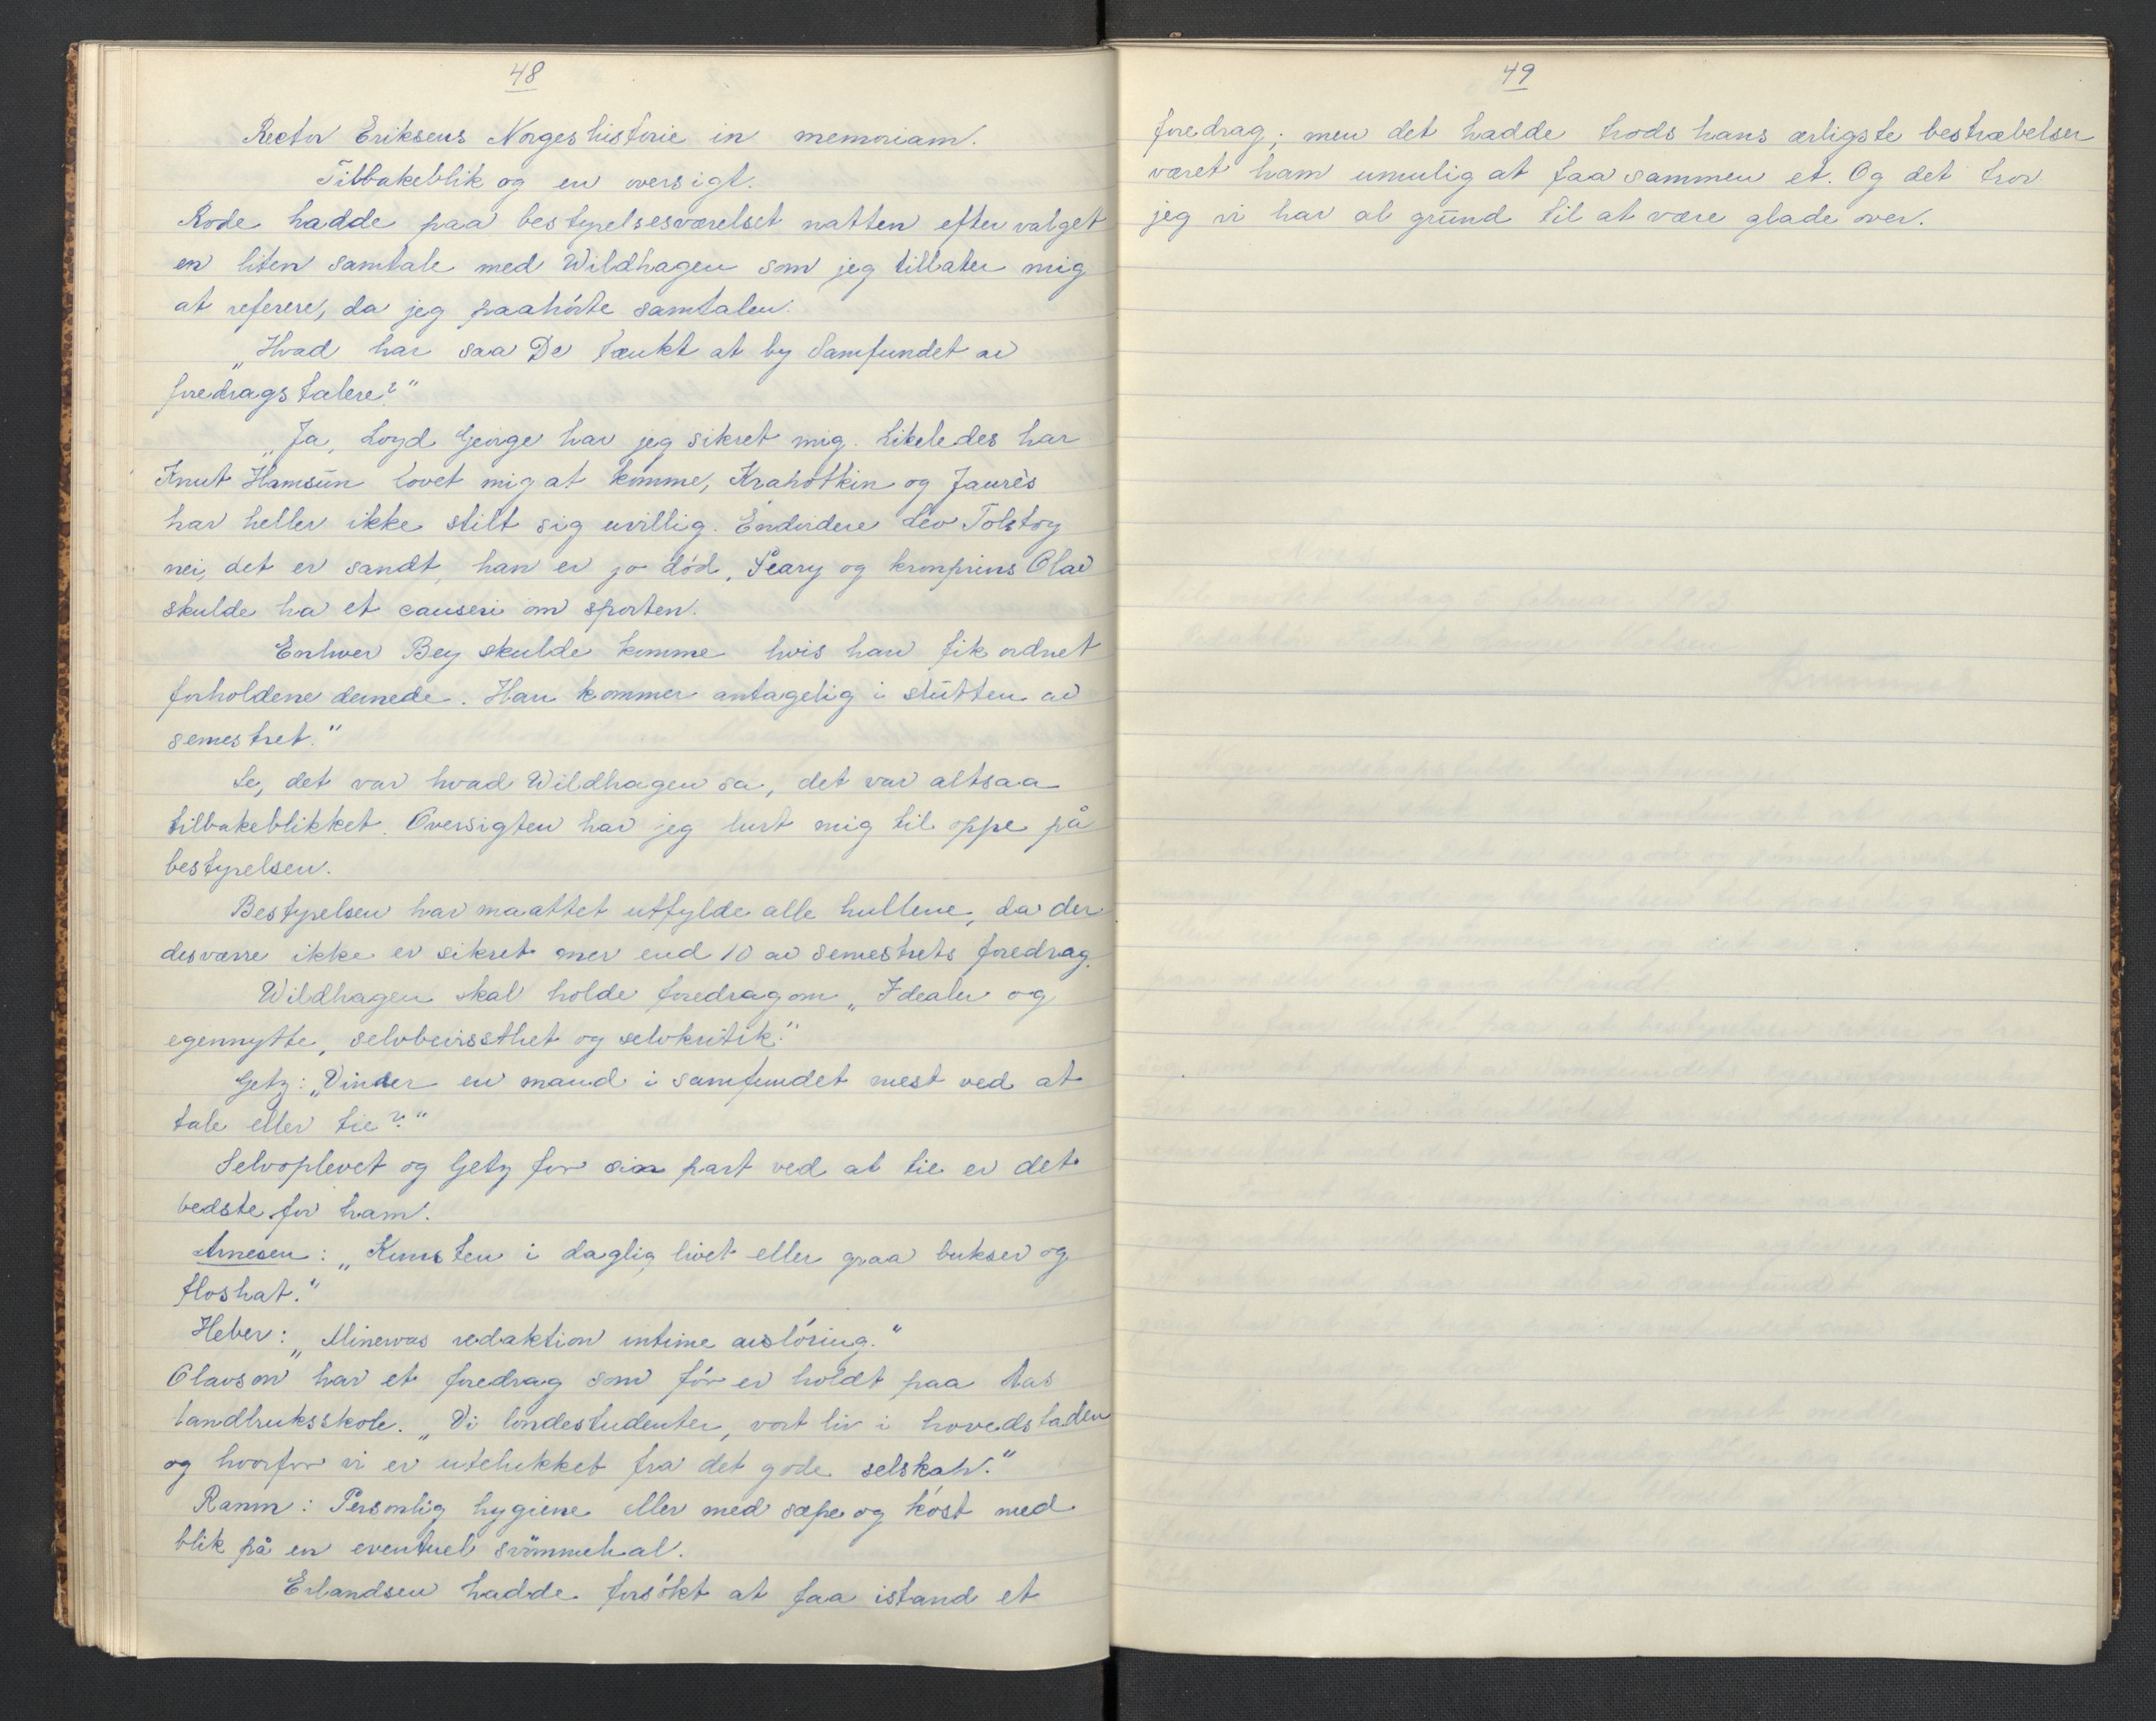 48
Rector Eriksens Norgeshistorie in memoriam.
Tilbakeblik og en oversigt.
Rode hadde paa bestyrelsesværelset natten efter valget
en liten samtale med Wildhagen som jeg tillater mig
at referere, da jeg paahørte samtalen.
„Hvad har saa De tænkt at by Samfundet av
foredragstalere?"
„Ja, Loyd George har jeg sikret mig. Likeledes har
Knut Hamsun lovet mig at komme, Krapotkin og Jaurès
har heller ikke stilt sig uvillig. Endvidere Leo Tolstoy
nei, det er sandt, han er jo död, Peary og kronprins Olav
skulde ha et causeri om sporten.
Enhver Bey skulde komme hvis han fik ordnet
forholdene dernede. Han kommer antagelig i slutten av
semestret."
Se, det var hvad Wildhagen sa, det var altsaa
tilbakeblikket. Oversigten har jeg lurt mig til oppe på
bestyrelsen.
Bestyrelsen har maattet utfylde alle hullene, da der
desværre ikke er sikret mer end 10 av semestrets foredrag.
Wildhagen skal holde foredrag om „Idealer og
egennytte, selvbevissthet og selvkritik."
Getz: „Vinder en mand i samfundet mest ved at
tale eller tie?"
Selvoplevet og Getz for sin part ved at tie er det
bedste for ham.
Arnesen: „Kunsten i daglig livet eller graa bukser og
floshat."
Heber: „Minervas redaktion intime avslöring."
Olavson har et foredrag som før er holdt paa Aas
landbruksskole. „Vi londestudenter, vort liv i hovedstaden
og hvorfor vi er utelukket fra det gode selskab."
Ramm: Personlig hygiene eller med sæpe og kóst med
blik på en eventuel svömmehal.
Erlandsen hadde forsökt at faa istand et
49
foredrag; men det hadde trods hans ærligste bestræbelser
været ham umulig at faa sammen et. Og det tror
jeg vi har al grund til at være glade over.